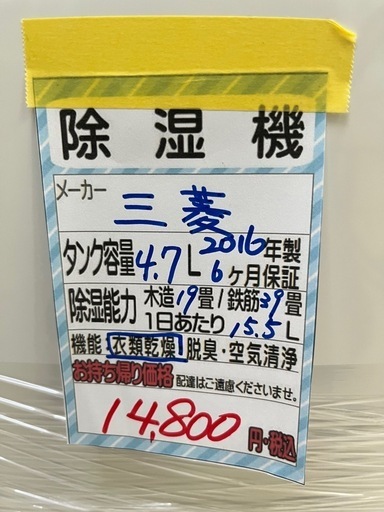 除湿機
メーカー
三菱
2016年製
タンク容量4.7L 6ヶ月保証
除湿能力 木造19畳/鉄筋39畳
1日あたり15.5L
機能 衣類乾燥 脱臭・空気清浄
お持ち帰り価格 配達はご遠慮くださいませ。
14,800
円・税込